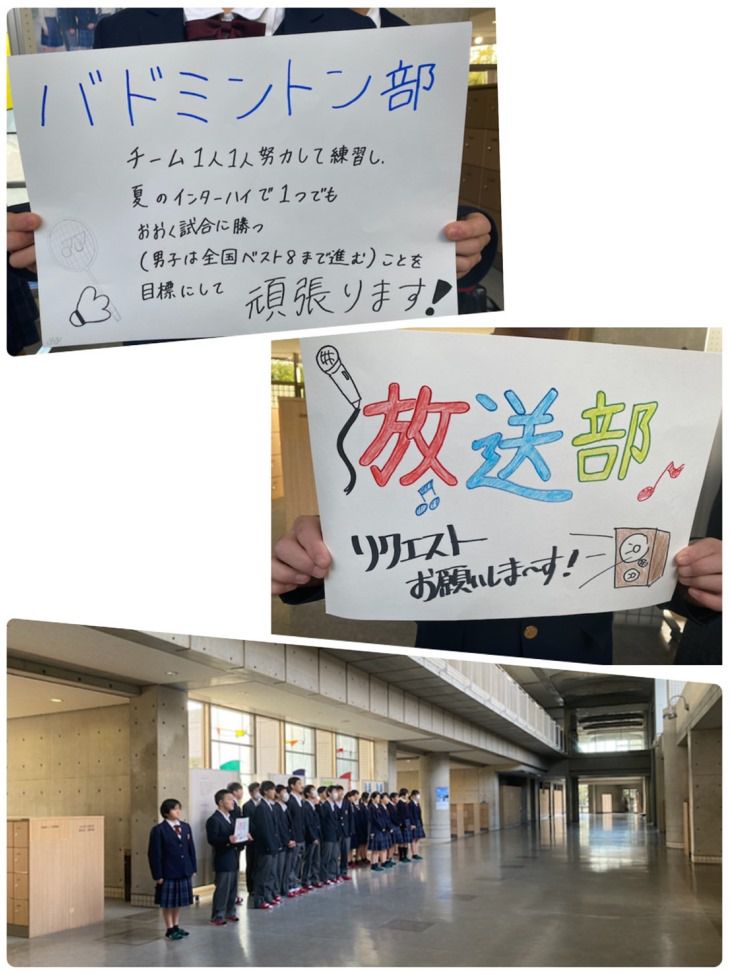 バドミントン部
チーム1人1人努力して練習し、
夏のインターハイで1つでも
おおく試合に勝つ
(男子は全国ベスト8まで進む)ことを
目標にして 頑張ります!
放送部
リクエスト
お願いしま~す!